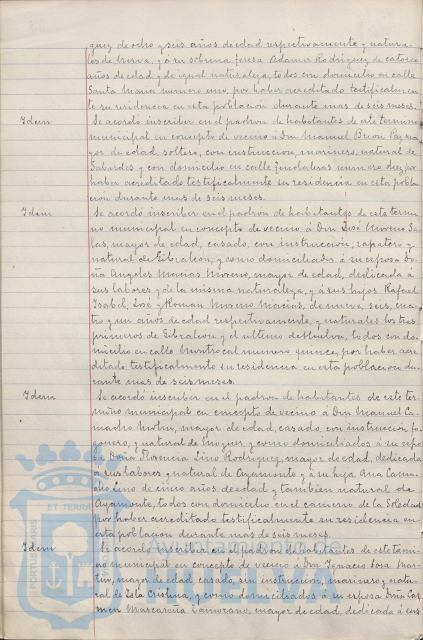 guez de ocho y seis años de edad respectivamente y natura-
les de Nerva, y a su sobrina Teresa Adamez Rodriguez de catorce
años de edad y de igual naturaleza, todos con domicilio en calle
Santa Maria numero uno, por haber acreditado testificalmen-
te su residencia en esta poblacion durante mas de seis meses.
Idem Se acordó inscribir en el padron de habitantes de este termino
municipal en concepto de vecino á Don Manuel Brion Paz ma-
yor de edad, soltero, con instruccion, marinero, natural de
y con domicilio en calle numero diez por
haber acreditado testificalmente su residencia en esta pobla-
cion durante mas de seis meses.
Idem Se acordó inscribir en el padron de habitantes de este termi-
no municipal en concepto de vecino á Don José Moreno Sa-
las, mayor de edad, casado, con instruccion, zapatero y
natural de Gibraleon, y como domiciliados á su esposa Do-
ña Angeles Macias Moreno, mayor de edad, dedicada á
sus labores y de la misma naturaleza, y á sus hijos Rafael
Isabel, José y Roman Moreno Macias, de nueve, seis, cua-
tro y un años de edad respectivamente, y naturales los tres
primeros de Gibraleon y el ultimo de Huelva, todos con do-
micilio en calle Montrocal numero quince, por haber acre-
ditado testificalmente su residencia en esta poblacion du-
rante mas de seis meses.
Idem Se acordó inscribir en el padron de habitantes de este ter-
mino municipal en concepto de vecino á Don Manuel Ca-
macho mayor de edad, casado, con instruccion, fo-
gonero, y natural de Moguer y como domiciliados á su espo-
sa Doña Florencia Lino Rodriguez, mayor de edad, dedicada
á sus labores y natural de Ayamonte y á su hija Ana Cama-
cho Lino de cinco años de edad y tambien natural de
Ayamonte, todos con domicilio en el camino de la Soledad
por haber acreditado testificalmente su residencia en
esta poblacion durante mas de seis meses.
Idem Se acordó inscribir en el padron de habitantes de este termi-
no municipal en concepto de vecino á Don Ignacio Rosa Mar-
tin, mayor de edad, casado, sin instruccion, marinero y natu-
ral de Isla Cristina, y como domiciliados á su esposa Doña Car-
men Mascareña Zamorano, mayor de edad, dedicada á sus